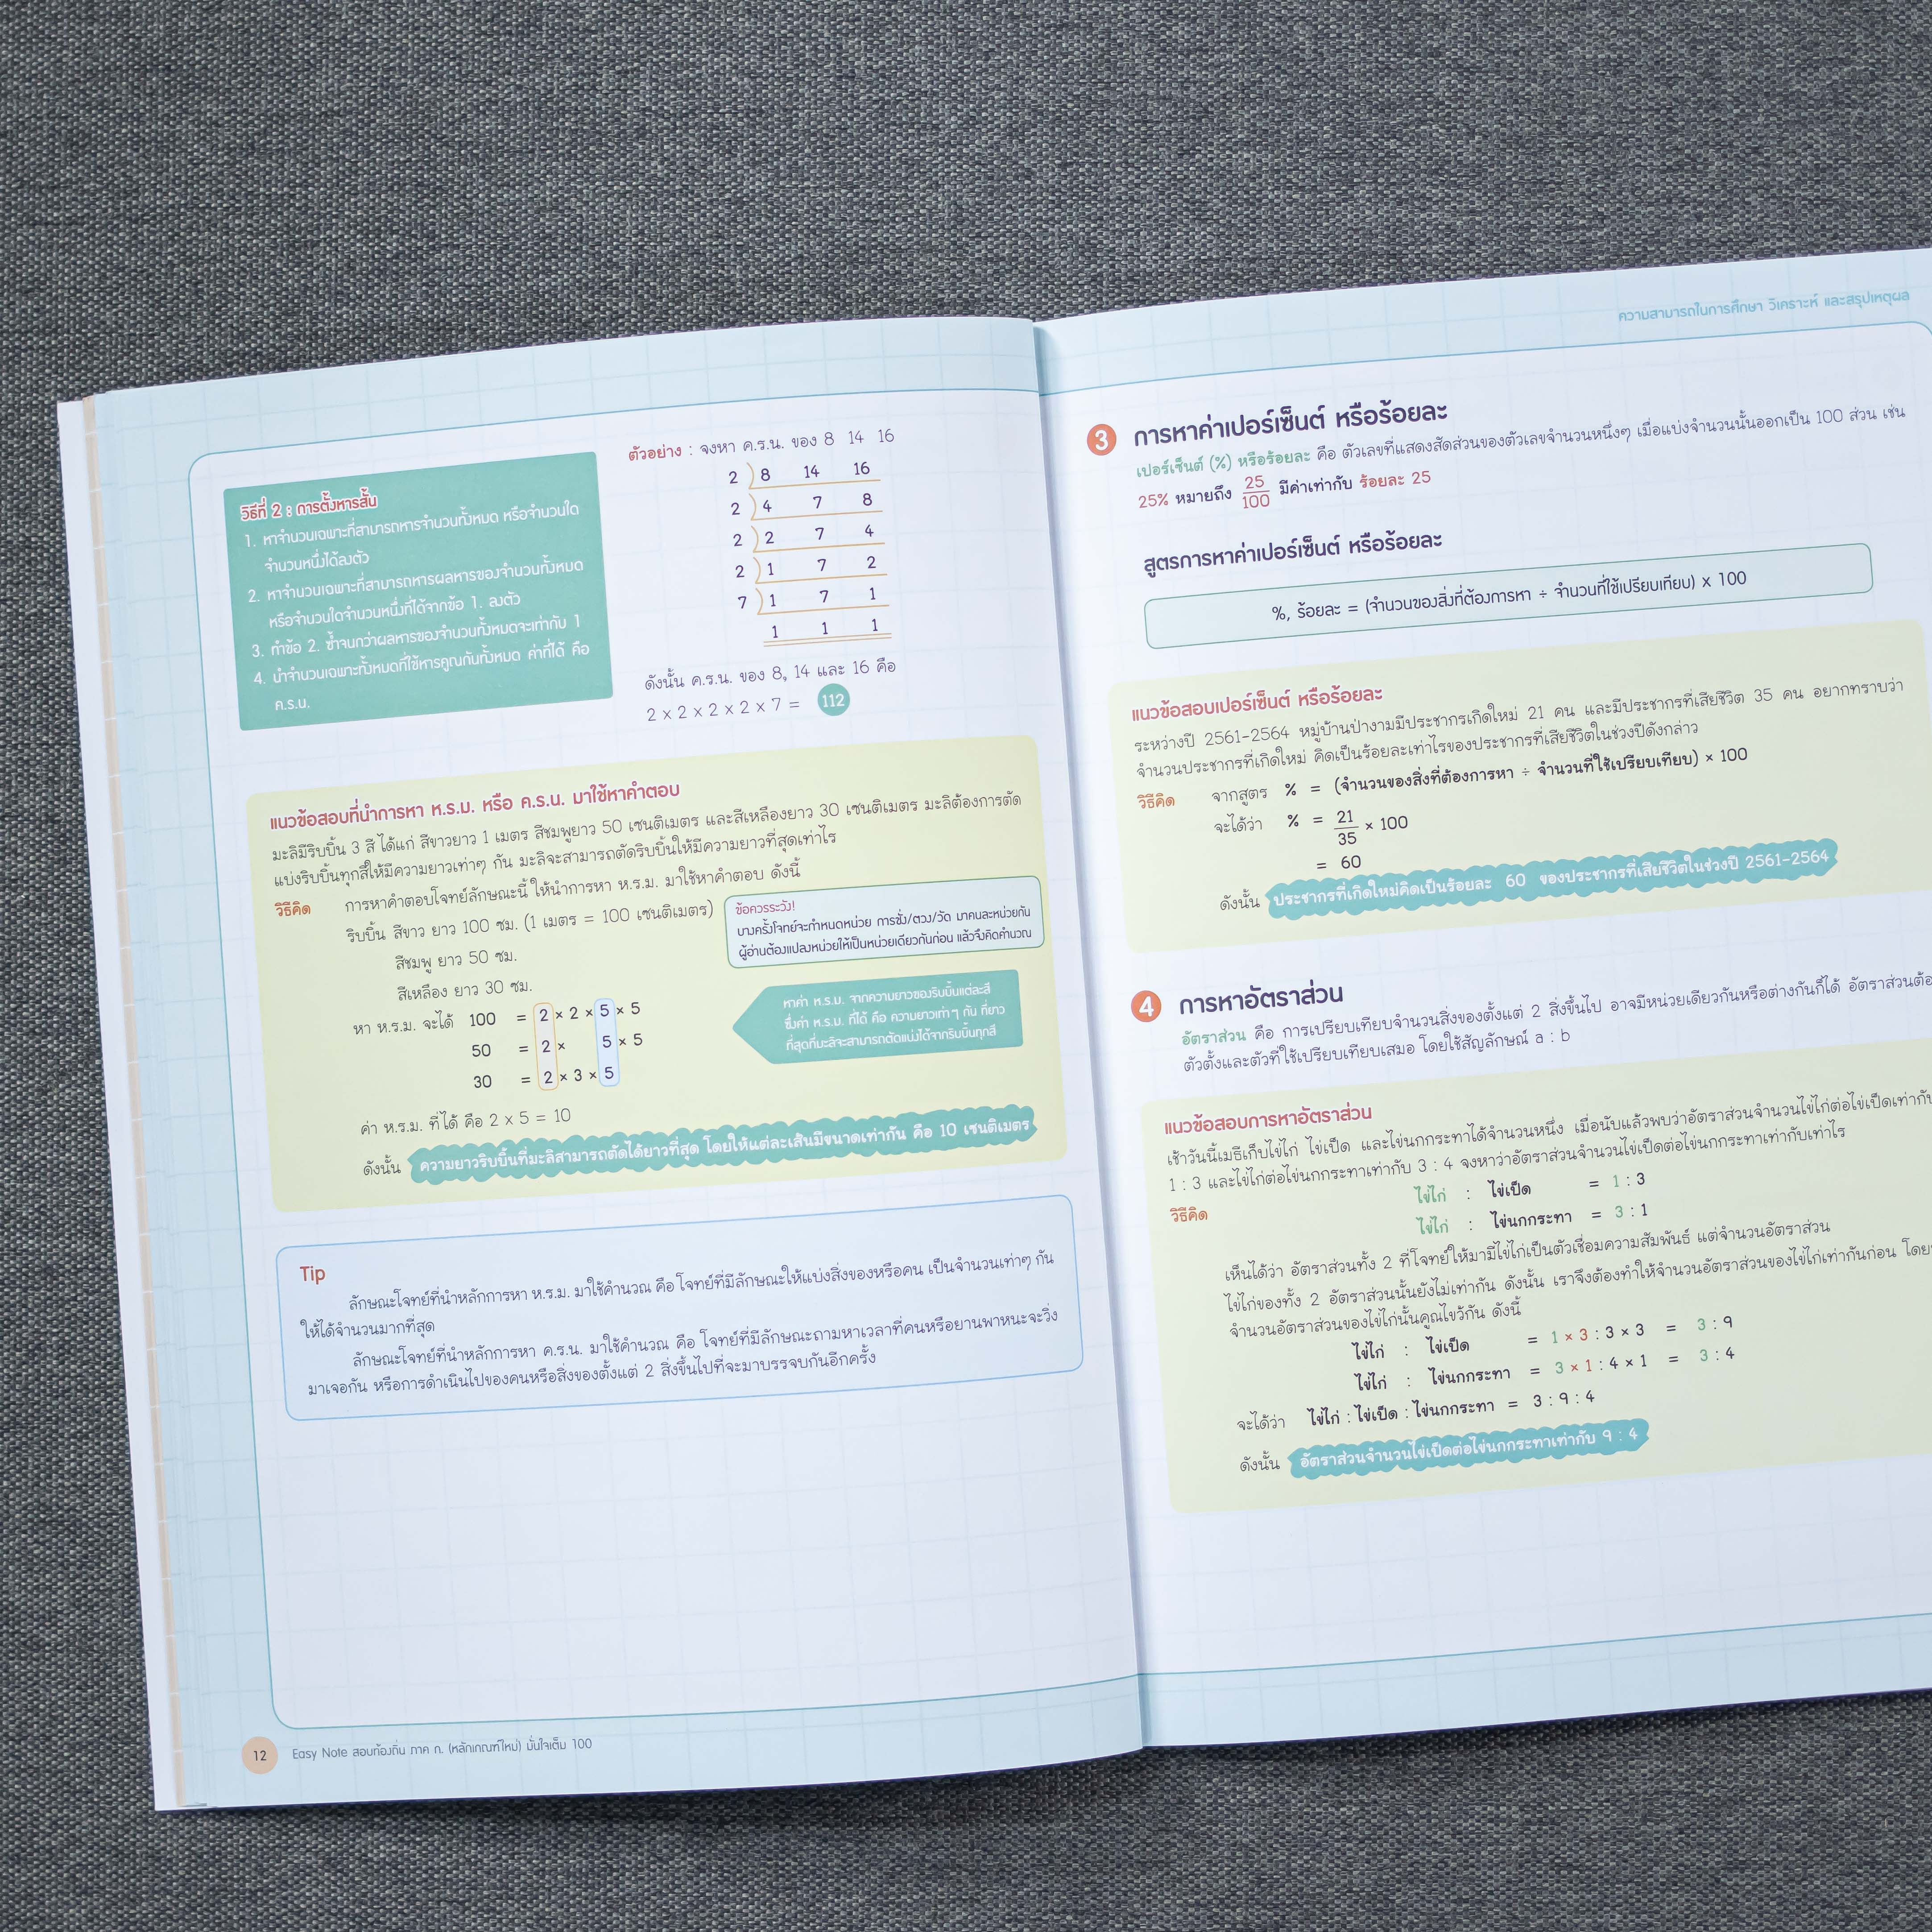 วิธีที่ 2 : การตั้งหารสั้น
1. หาจำนวนเฉพาะที่สามารถหารจำนวนทั้งหมด หรือจำนวนใด
จำนวนหนึ่งได้ลงตัว
2. หาจำนวนเฉพาะที่สามารถหารผลหารของจำนวนทั้งหมด
หรือจำนวนใดจำนวนหนึ่งที่ได้จากข้อ 1. ลงตัว
3. ทำข้อ 2. ซ้ำจนกว่าผลหารของจำนวนทั้งหมดจะเท่ากับ 1
4. นำจำนวนเฉพาะทั้งหมดที่ใช้หารคูณกันทั้งหมด ค่าที่ได้ คือ
ค.ร.น.
ตัวอย่าง : จงหา ค.ร.น. ของ 8 14 16
2 ) 8 14 16
2 ) 4 7 8
2 ) 2 7 4
2 ) 1 7 2
7 ) 1 7 1
1 1 1
ดังนั้น ค.ร.น. ของ 8, 14 และ 16 คือ
2 x 2 x 2 x 2 x 7 = 112
แนวข้อสอบที่นำการหา ห.ร.ม. หรือ ค.ร.น. มาใช้หาคำตอบ
มะลิมีริบบิ้น 3 สี ได้แก่ สีขาวยาว 1 เมตร สีชมพูยาว 50 เซนติเมตร และสีเหลืองยาว 30 เซนติเมตร มะลิต้องการตัด
แบ่งริบบิ้นทุกสีให้มีความยาวเท่าๆ กัน มะลิจะสามารถตัดริบบิ้นให้มีความยาวที่สุดเท่าไร
วิธีคิด การหาคำตอบโจทย์ลักษณะนี้ ให้นำการหา ห.ร.ม. มาใช้หาคำตอบ ดังนี้
ริบบิ้น สีขาว ยาว 100 ซม. (1 เมตร = 100 เซนติเมตร)
สีชมพู ยาว 50 ซม.
สีเหลือง ยาว 30 ซม.
ข้อควรระวัง!
บางครั้งโจทย์จะกำหนดหน่วย การชั่ง/ตวง/วัด มาคนละหน่วยกัน
ผู้อ่านต้องแปลงหน่วยให้เป็นหน่วยเดียวกันก่อน แล้วจึงคิดคำนวณ
หา ห.ร.ม. จะได้ 100 = 2 × 2 × 5 × 5
50 = 2 × 5 × 5
30 = 2 × 3 × 5
หาค่า ห.ร.ม. จากความยาวของริบบิ้นแต่ละสี
ซึ่งค่า ห.ร.ม. ที่ได้ คือ ความยาวเท่าๆ กัน ที่ยาว
ที่สุดที่มะลิจะสามารถตัดแบ่งได้จากริบบิ้นทุกสี
ค่า ห.ร.ม. ที่ได้ คือ 2 x 5 = 10
ดังนั้น ความยาวริบบิ้นที่มะลิสามารถตัดได้ยาวที่สุด โดยให้แต่ละเส้นมีขนาดเท่ากัน คือ 10 เซนติเมตร
Tip
ลักษณะโจทย์ที่นำหลักการหา ห.ร.ม. มาใช้คำนวณ คือ โจทย์ที่มีลักษณะให้แบ่งสิ่งของหรือคน เป็นจำนวนเท่าๆ กัน
ให้ได้จำนวนมากที่สุด
ลักษณะโจทย์ที่นำหลักการหา ค.ร.น. มาใช้คำนวณ คือ โจทย์ที่มีลักษณะถามหาเวลาที่คนหรือยานพาหนะจะวิ่ง
มาเจอกัน หรือการดำเนินไปของคนหรือสิ่งของตั้งแต่ 2 สิ่งขึ้นไปที่จะมาบรรจบกันอีกครั้ง
12 Easy Note สอบท้องถิ่น ภาค ก. (หลักเกณฑ์ใหม่) มั่นใจเต็ม 100
ความสามารถในการศึกษา วิเคราะห์ และสรุปเหตุผล
3 การหาค่าเปอร์เซ็นต์ หรือร้อยละ
เปอร์เซ็นต์ (%) หรือร้อยละ คือ ตัวเลขที่แสดงสัดส่วนของตัวเลขจำนวนหนึ่งๆ เมื่อแบ่งจำนวนนั้นออกเป็น 100 ส่วน เช่น
25% หมายถึง 25/100 มีค่าเท่ากับ ร้อยละ 25
สูตรการหาค่าเปอร์เซ็นต์ หรือร้อยละ
%, ร้อยละ = (จำนวนของสิ่งที่ต้องการหา ÷ จำนวนที่ใช้เปรียบเทียบ) x 100
แนวข้อสอบเปอร์เซ็นต์ หรือร้อยละ
ระหว่างปี 2561-2564 หมู่บ้านป่างามมีประชากรเกิดใหม่ 21 คน และมีประชากรที่เสียชีวิต 35 คน อยากทราบว่า
จำนวนประชากรที่เกิดใหม่ คิดเป็นร้อยละเท่าไรของประชากรที่เสียชีวิตในช่วงปีดังกล่าว
วิธีคิด จากสูตร % = (จำนวนของสิ่งที่ต้องการหา ÷ จำนวนที่ใช้เปรียบเทียบ) × 100
จะได้ว่า % = 21/35 × 100
= 60
ดังนั้น ประชากรที่เกิดใหม่คิดเป็นร้อยละ 60 ของประชากรที่เสียชีวิตในช่วงปี 2561-2564
4 การหาอัตราส่วน
อัตราส่วน คือ การเปรียบเทียบจำนวนสิ่งของตั้งแต่ 2 สิ่งขึ้นไป อาจมีหน่วยเดียวกันหรือต่างกันก็ได้ อัตราส่วนต้อ
ตัวตั้งและตัวที่ใช้เปรียบเทียบเสมอ โดยใช้สัญลักษณ์ a : b
แนวข้อสอบการหาอัตราส่วน
เช้าวันนี้เมธีเก็บไข่ไก่ ไข่เป็ด และไข่นกกระทาได้จำนวนหนึ่ง เมื่อนับแล้วพบว่าอัตราส่วนจำนวนไข่ไก่ต่อไข่เป็ดเท่ากับ
1 : 3 และไข่ไก่ต่อไข่นกกระทาเท่ากับ 3 : 4 จงหาว่าอัตราส่วนจำนวนไข่เป็ดต่อไข่นกกระทาเท่ากับเท่าไร
วิธีคิด ไข่ไก่ : ไข่เป็ด = 1 : 3
ไข่ไก่ : ไข่นกกระทา = 3 : 1
เห็นได้ว่า อัตราส่วนทั้ง 2 ที่โจทย์ให้มามีไข่ไก่เป็นตัวเชื่อมความสัมพันธ์ แต่จำนวนอัตราส่วน
ไข่ไก่ของทั้ง 2 อัตราส่วนนั้นยังไม่เท่ากัน ดังนั้น เราจึงต้องทำให้จำนวนอัตราส่วนของไข่ไก่เท่ากันก่อน โดย
จำนวนอัตราส่วนของไข่ไก่นั้นคูณไขว้กัน ดังนี้
ไข่ไก่ : ไข่เป็ด = 1 × 3 : 3 × 3 = 3 : 9
ไข่ไก่ : ไข่นกกระทา = 3 × 1 : 4 × 1 = 3 : 4
จะได้ว่า ไข่ไก่ : ไข่เป็ด : ไข่นกกระทา = 3 : 9 : 4
ดังนั้น อัตราส่วนจำนวนไข่เป็ดต่อไข่นกกระทาเท่ากับ 9 : 4